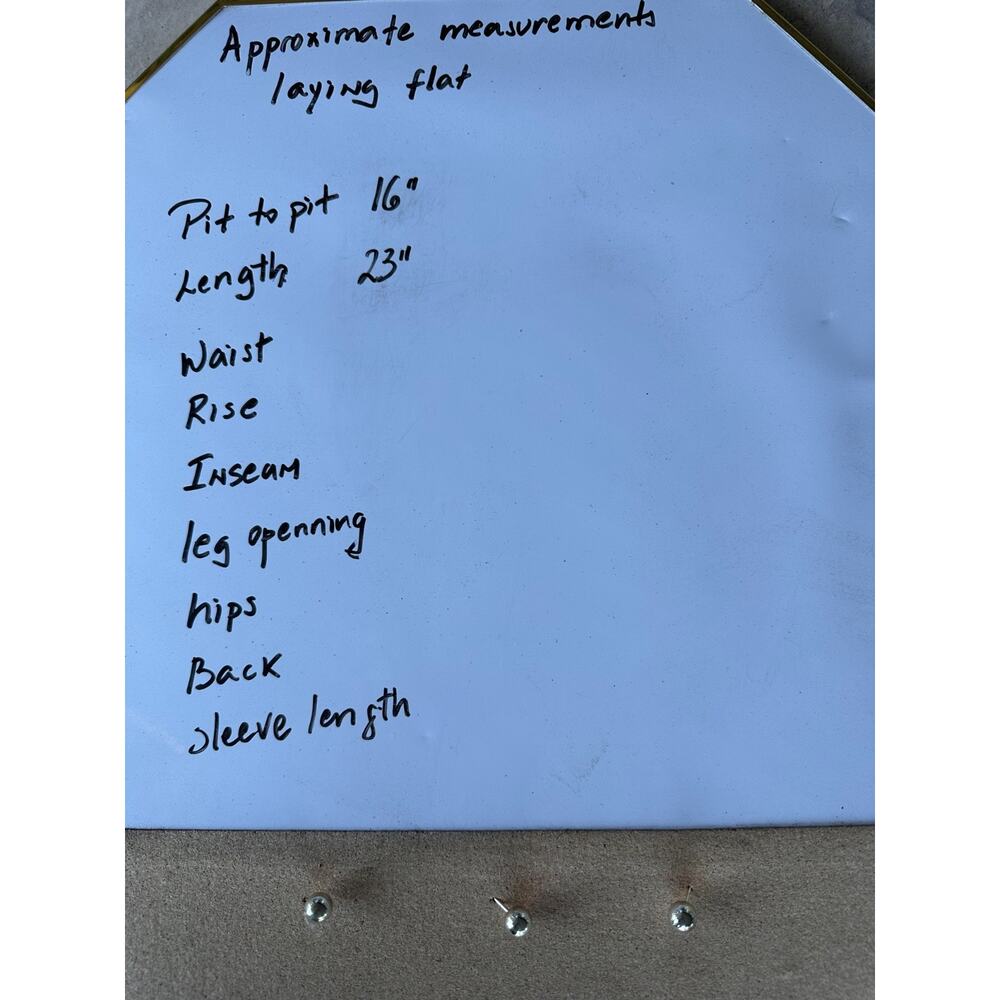 Approximate measurements
laying flat
Pit to pit 16"
Length 23"
Waist
Rise
Inseam
leg openning
hips
Back
sleeve length